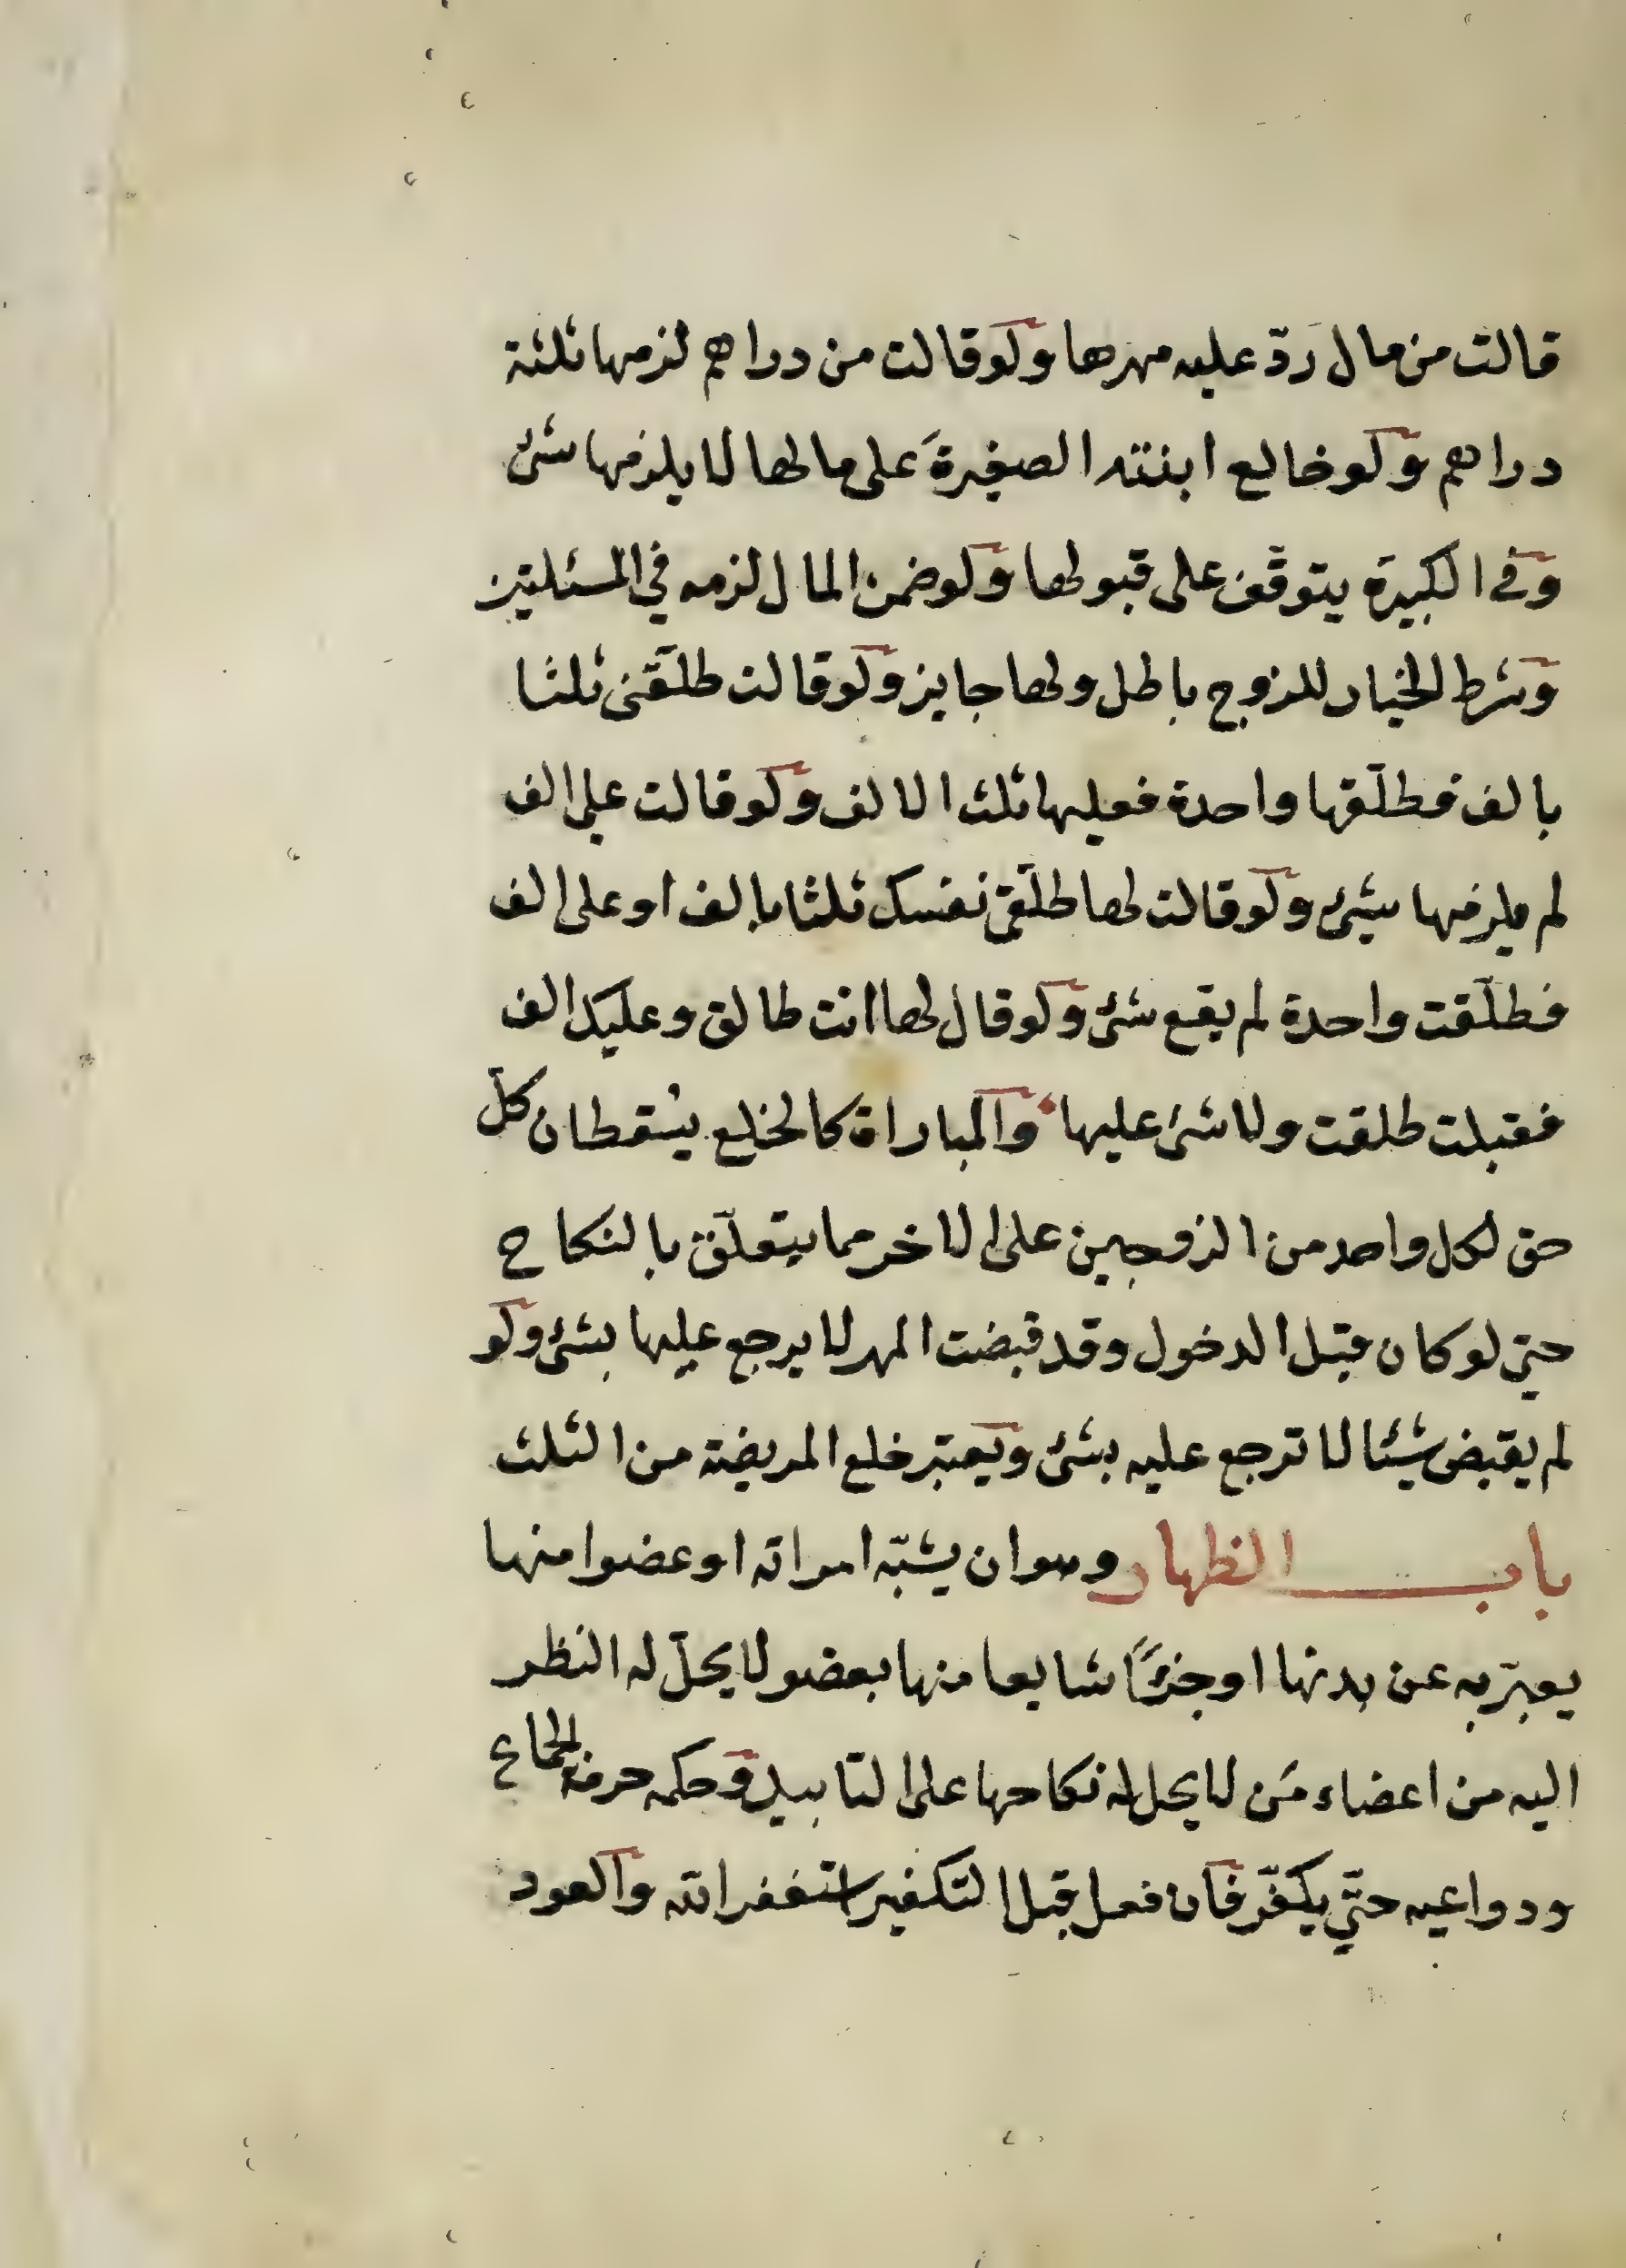 قالت من مال ردّ عليه مهرها ولو قالت من دراهم لزمها ثلثة
دراهم ولو خالع ابنته الصغيرة على مالها لا يلزمها شئ
وفي الكبيرة يتوقّف على قبولها ولو ضمن المال لزمه في المسئلتين
وشرط الخيار للزوج باطل ولها جايز ولو قالت طلّقني ثلثا
بالف فطلّقها واحدة فعليها ثلث الالف ولو قالت على الف
لم يلزمها شئ ولو قالت لها طلّقي نفسك ثلثا بالف او على الف
فطلّقت واحدة لم يقع شئ ولو قال لها انت طالق وعليك الف
فقبلت طلقت ولا شئ عليها والمباراة كالخلع يسقطان كلّ
حق لكل واحد من الزوجين على الاخر مما يتعلّق بالنكاح
حتى لو كان قبل الدخول وقد قبضت المهر لا يرجع عليها بشئ ولو
لم يقبض شيئا لا ترجع عليه بشئ ويعتبر خلع المريضة من الثلث
باب الظهار وهو ان يشبّه امراته او عضوا منها
يعبّر به عن بدنها او جزءًا شايعا منها بعضو لا يحلّ له النظر
اليه من اعضاء مَن لا يحل له نكاحها على التابيد وحكمه حرمة الجماع
ودواعيه حتّى يكفّر فان فعل قبل التكفير استغفر الله والعود